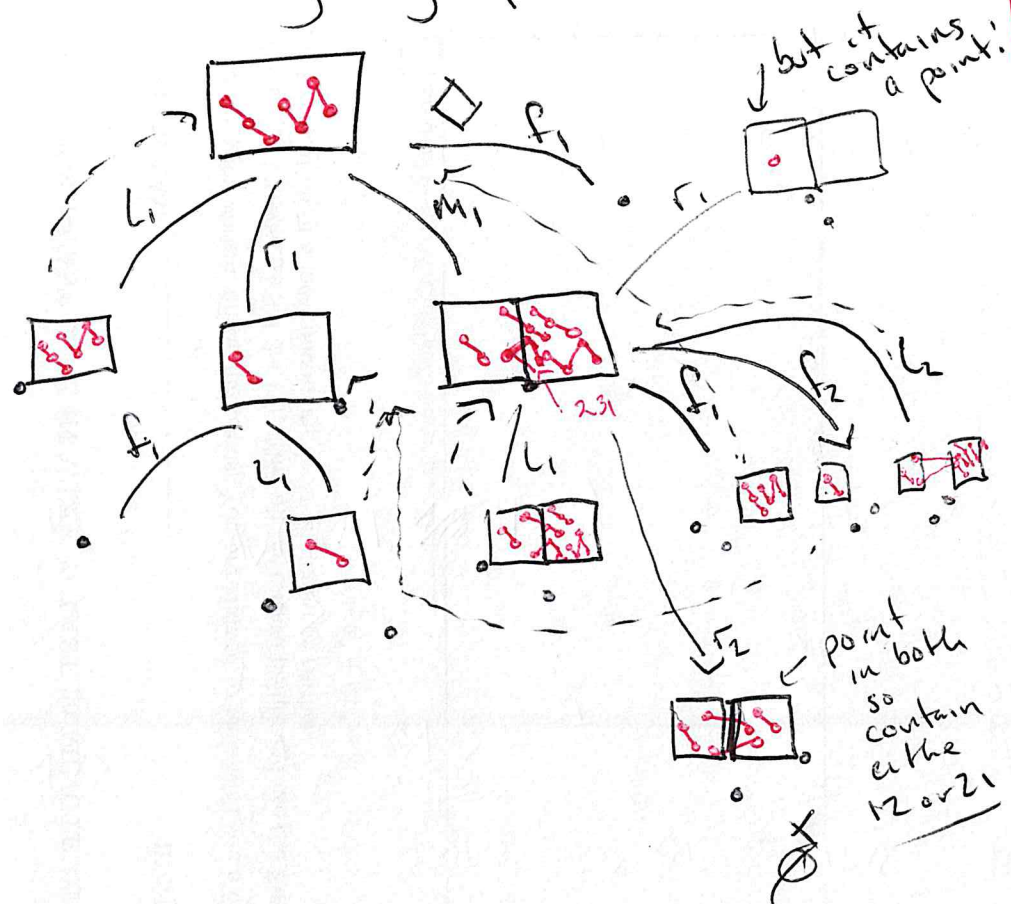 but it
contains
a point!
f1
m1
r1
L1
r1
f1
f2
L2
231
f1
L1
L1
r2
point
in both
so
contain
12 or 21